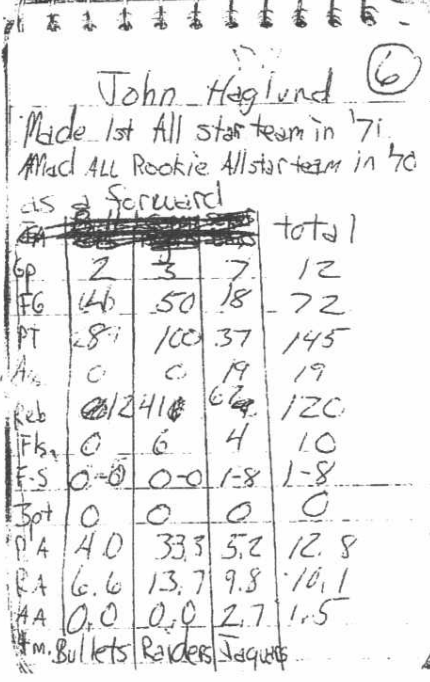 6
John Haglund
Made 1st All star team in '71
Mad ALL Rookie Allstar team in '70
as a forward
total
Gp 2 3 7 12
FG 50 18 72
PT 100 37 145
0 0 19 19
Reb 12 41 120
Fls. 0 6 4 10
F-S 0-0 0-0 1-8 1-8
3pt 0 0 0 0
PA 4.0 33.3 5.2 12.8
RA 6.6 13.7 9.8 10.1
AA 0.0 0.0 2.7 1.5
Tm. Bullets Raiders Jaquars